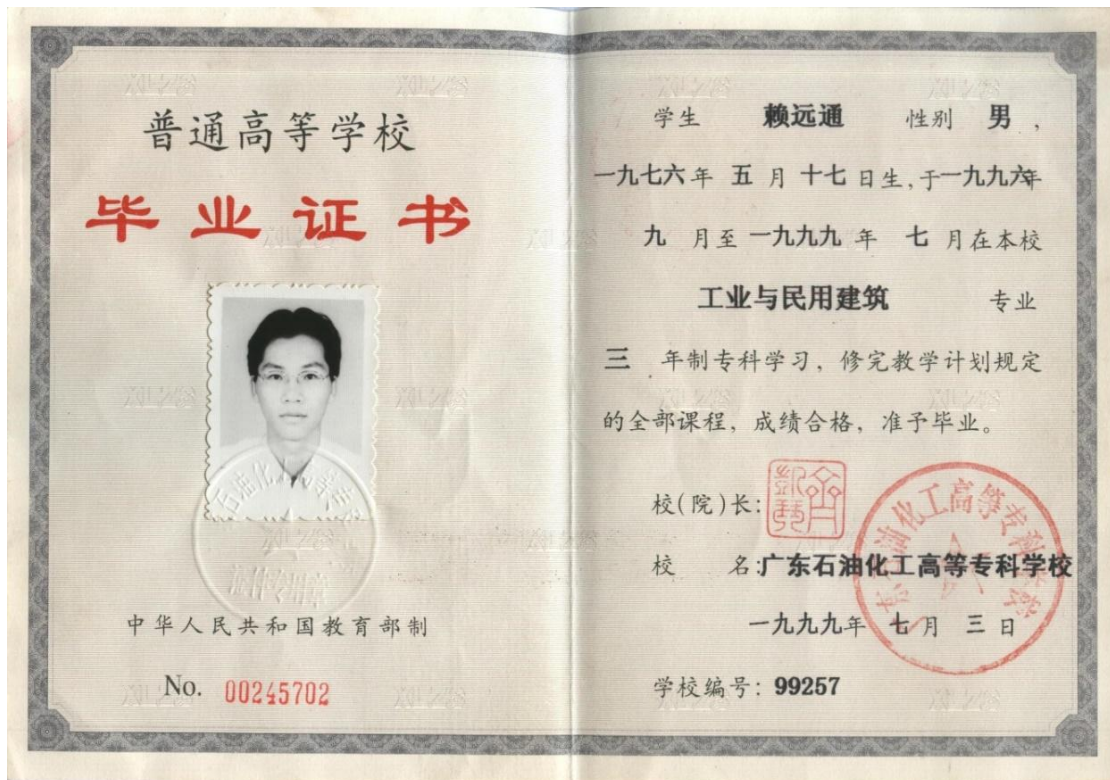 普通高等学校
毕业证书
中华人民共和国教育部制
No. 00245702
学生 赖远通 性别 男，
一九七六年 五 月 十七 日生，于一九九六年
九 月至 一九九九 年 七 月在本校
工业与民用建筑 专业
三 年制专科学习，修完教学计划规定
的全部课程，成绩合格，准予毕业。
校(院)长：
校 名：广东石油化工高等专科学校
一九九九年 七 月 三 日
学校编号：99257